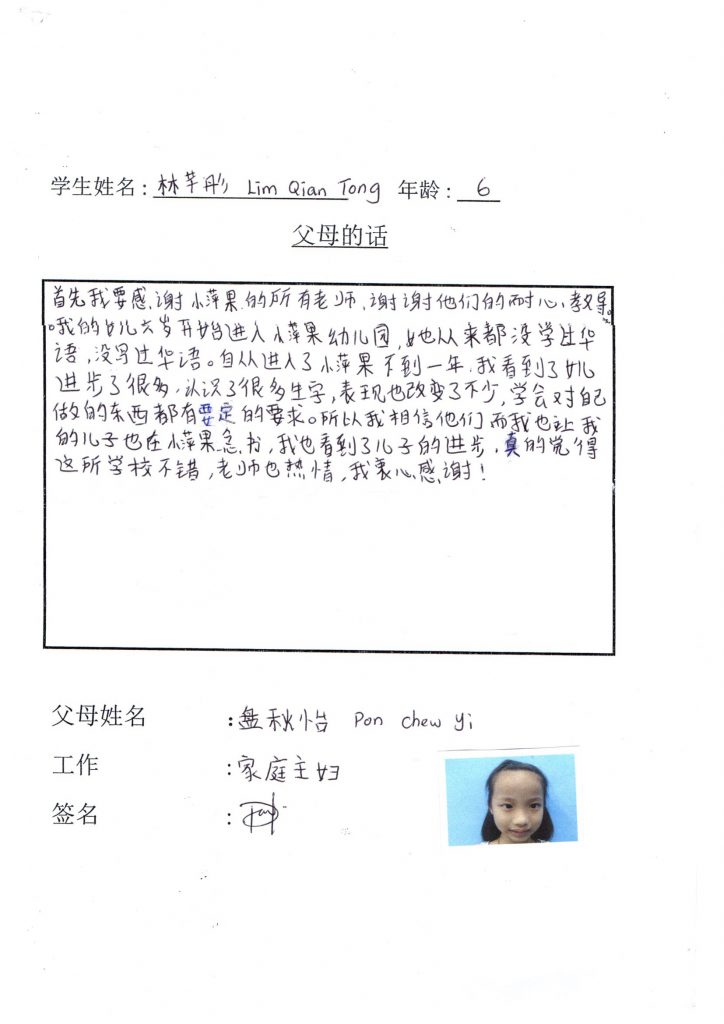 学生姓名：林芊彤 Lim Qian Tong 年龄：6
父母的话
首先我要感谢小苹果的所有老师，谢谢他们的耐心教导
。我的女儿六岁开始进入小苹果幼儿园，她从来都没学过华
语，没写过华语。自从进入了小苹果不到一年，我看到了女儿
进步了很多，认识了很多生字，表现也改变了不少，学会对自己
做的东西都有要定的要求。所以我相信他们而我也让我
的儿子也在小苹果念书，我也看到了儿子的进步，真的觉得
这所学校不错，老师也热情，我衷心感谢！
父母姓名 ：盘秋怡 Pon chew yi
工作 ：家庭主妇
签名 ：